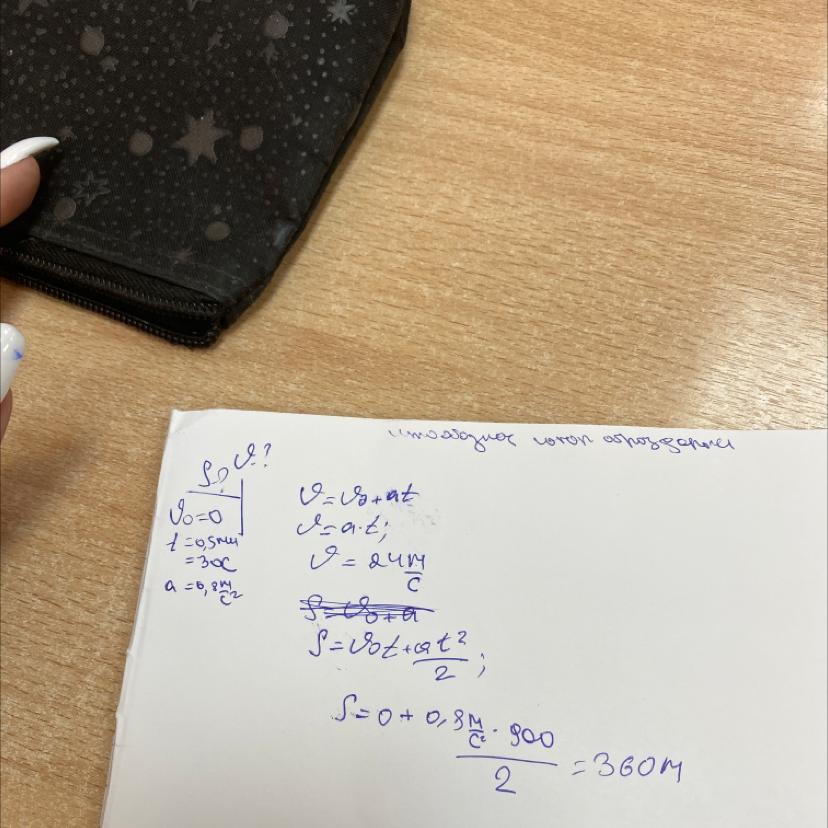 S? υ.?
υ₀=0
t=0,5мин
=30с
a=0,8м/с²
υ=υ₀+at
υ=a·t;
υ=24м/с
S=υ₀+a
S=υ₀t+at²/2;
S=0+0,8м/с²·900/2=360м